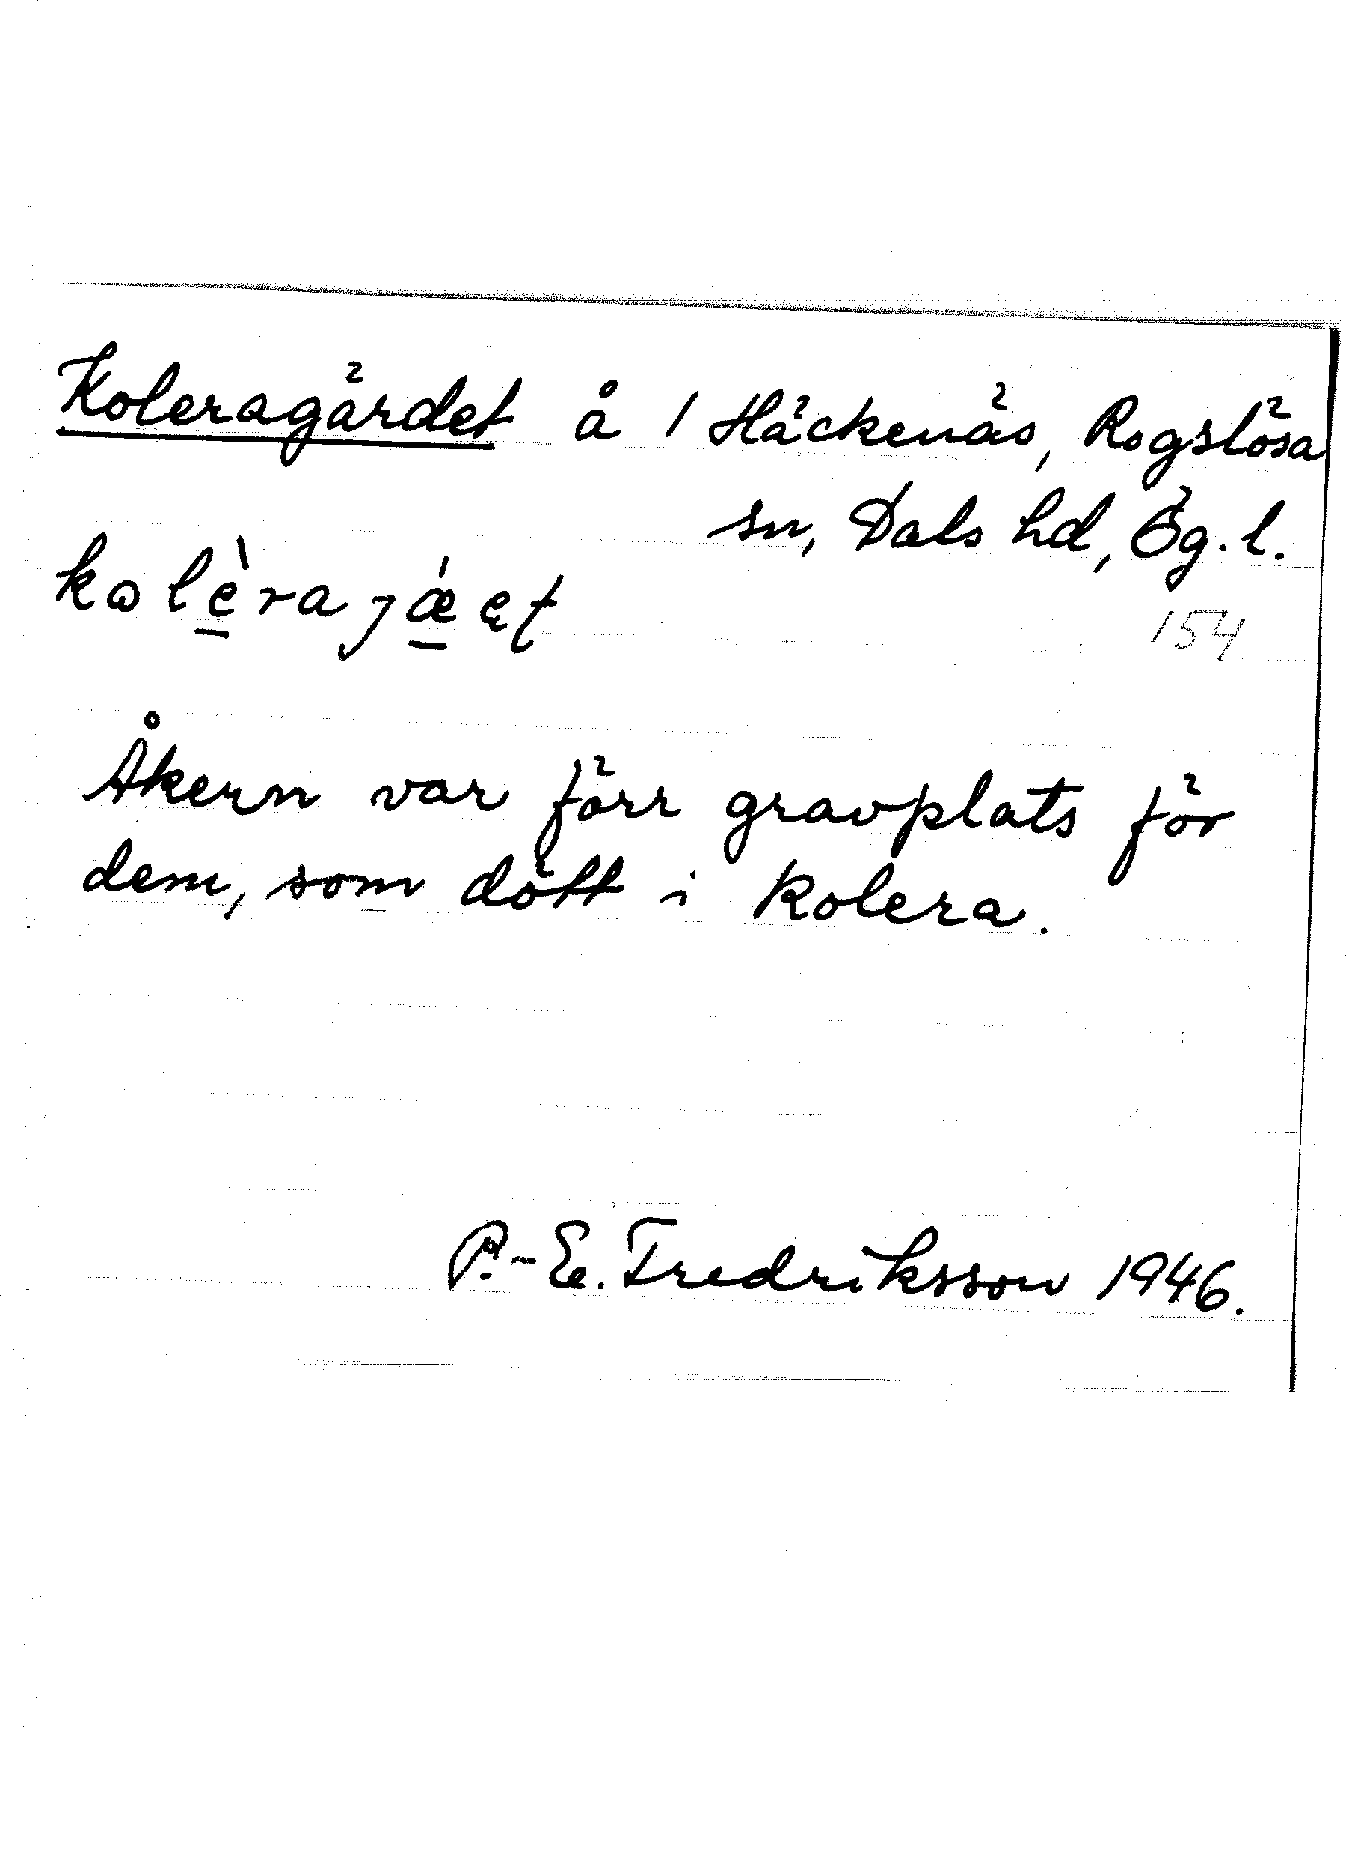 Koleragärdet å 1 Häckenäs, Rogslösa
sn, Dals hd, Ög. l.
kɷlèrajǽet
154
Åkern var förr gravplats för
dem, som dött i kolera.
P.-E. Fredriksson 1946.